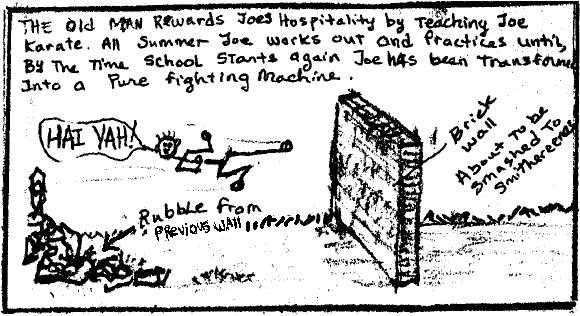 THE Old MAN Rewards Joes Hospitality by Teaching Joe
Karate. All Summer Joe works out and Practices until,
By The Time School Starts again Joe has been transformed
Into a Pure fighting Machine.
HAI YAH!
Brick
Wall
About To be
Smashed To
Smithereenes
Rubble from
Previous Wall